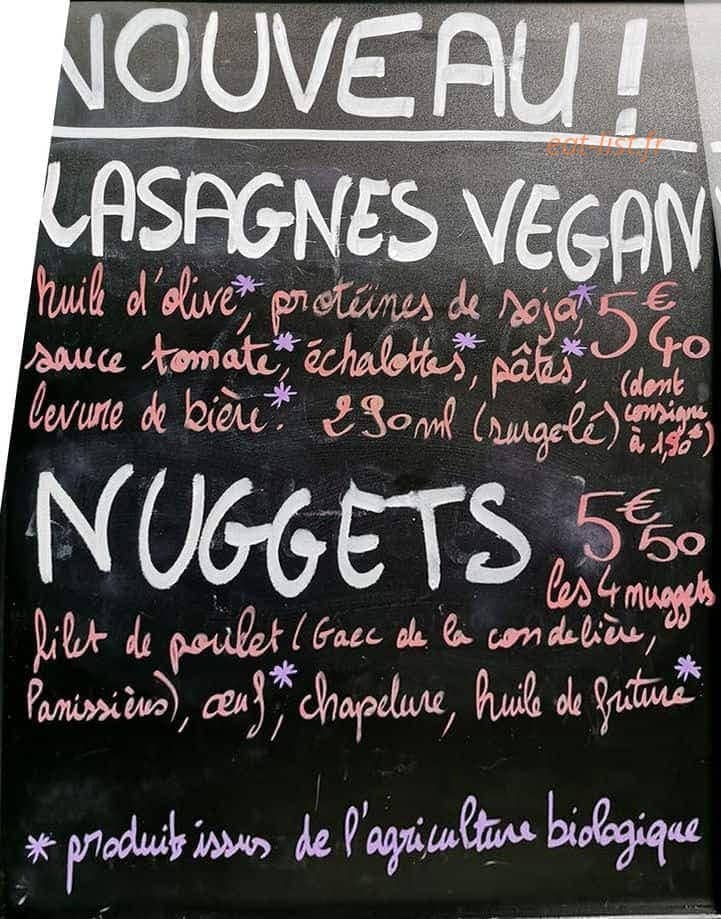 NOUVEAU !
eat-list.fr
LASAGNES VEGAN
huile d'olive*, protéines de soja*, 5€40
sauce tomate*, échalottes*, pâtes*, (dont consigne à 1,50€)
levure de bière*. 290ml (surgelé)
NUGGETS 5€50
les 4 nuggets
filet de poulet (Gaec de la condelière,
Panissières), œuf*, chapelure, huile de friture*
* produits issus de l'agriculture biologique